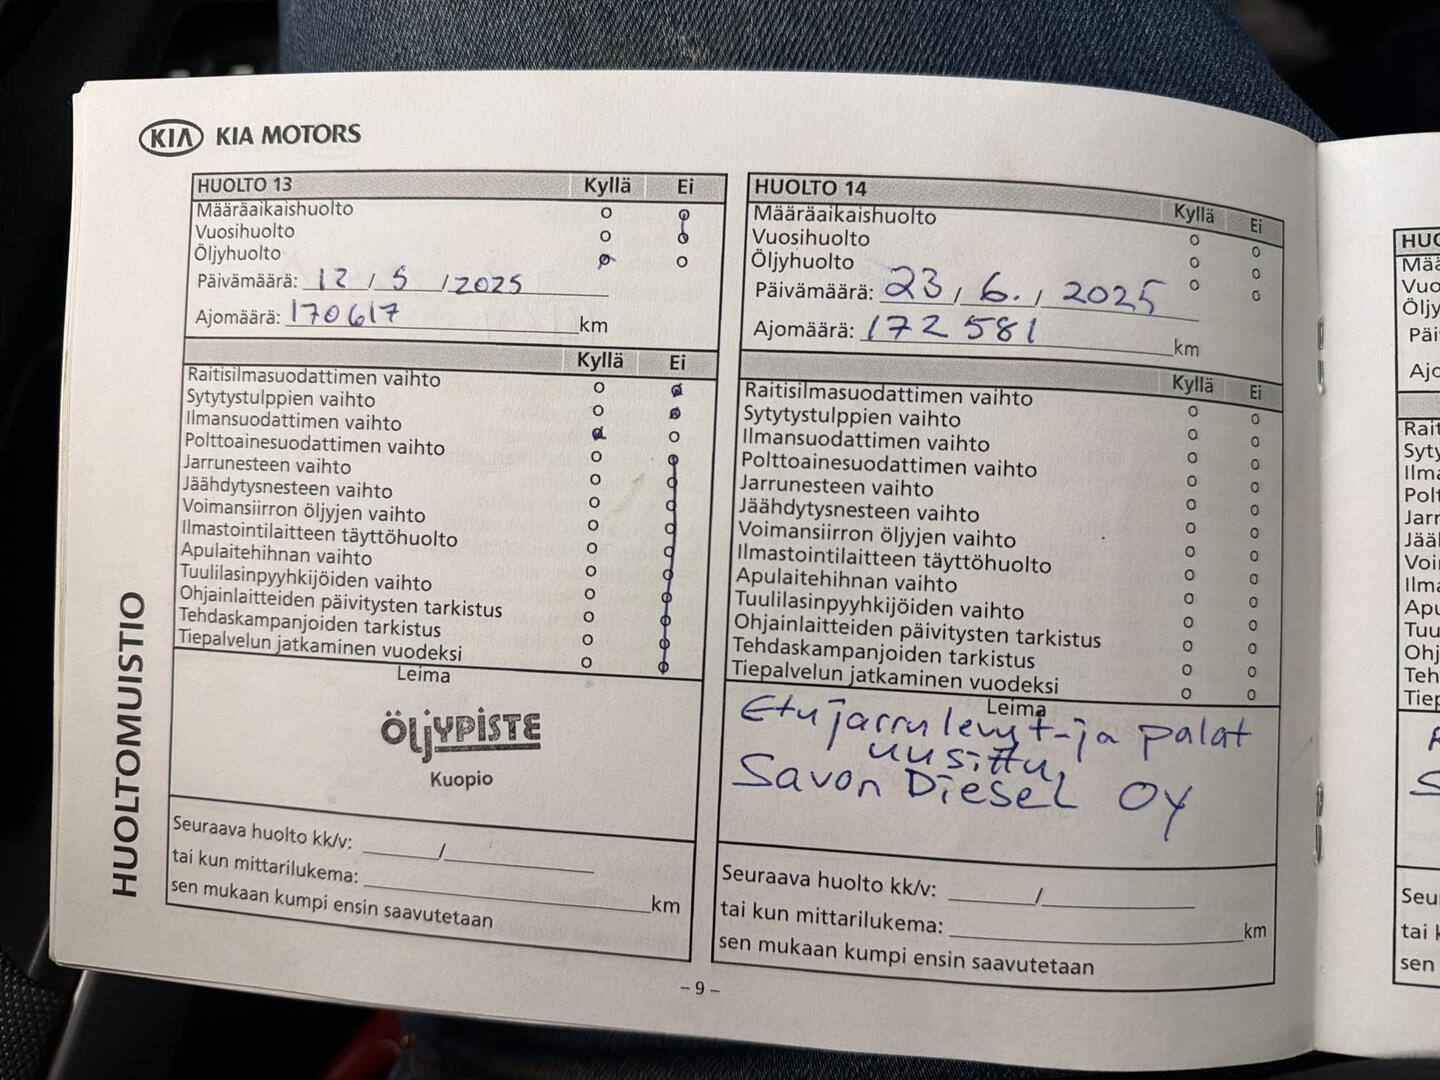 KIA KIA MOTORS
HUOLTOMUISTIO
HUOLTO 13 Kyllä Ei
Määräaikaishuolto o o
Vuosihuolto o o
Öljyhuolto o o
Päivämäärä: 12 / 5 / 2025
Ajomäärä: 170617 km
Kyllä Ei
Raitisilmasuodattimen vaihto o o
Sytytystulppien vaihto o o
Ilmansuodattimen vaihto o o
Polttoainesuodattimen vaihto o o
Jarrunesteen vaihto o o
Jäähdytysnesteen vaihto o o
Voimansiirron öljyjen vaihto o o
Ilmastointilaitteen täyttöhuolto o o
Apulaitehihnan vaihto o o
Tuulilasinpyyhkijöiden vaihto o o
Ohjainlaitteiden päivitysten tarkistus o o
Tehdaskampanjoiden tarkistus o o
Tiepalvelun jatkaminen vuodeksi o o
Leima
ÖLJYPISTE
Kuopio
Seuraava huolto kk/v: /
tai kun mittarilukema: km
sen mukaan kumpi ensin saavutetaan
HUOLTO 14 Kyllä Ei
Määräaikaishuolto o o
Vuosihuolto o o
Öljyhuolto o o
Päivämäärä: 23 / 6. / 2025
Ajomäärä: 172 581 km
Kyllä Ei
Raitisilmasuodattimen vaihto o o
Sytytystulppien vaihto o o
Ilmansuodattimen vaihto o o
Polttoainesuodattimen vaihto o o
Jarrunesteen vaihto o o
Jäähdytysnesteen vaihto o o
Voimansiirron öljyjen vaihto o o
Ilmastointilaitteen täyttöhuolto o o
Apulaitehihnan vaihto o o
Tuulilasinpyyhkijöiden vaihto o o
Ohjainlaitteiden päivitysten tarkistus o o
Tehdaskampanjoiden tarkistus o o
Tiepalvelun jatkaminen vuodeksi o o
Leima
Etujarrulevyt-ja palat
uusittu,
Savon Diesel OY
Seuraava huolto kk/v: /
tai kun mittarilukema: km
sen mukaan kumpi ensin saavutetaan
– 9 –